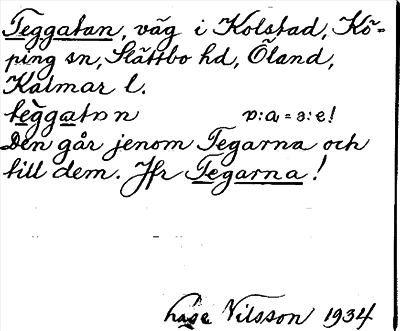 Teggatan, väg i Kolstad, Kö-
ping sn, Slättbo hd, Öland,
Kalmar l.
Den går jenom Tegarna och
till dem. Jfr Tegarna!
Nilsson 1934